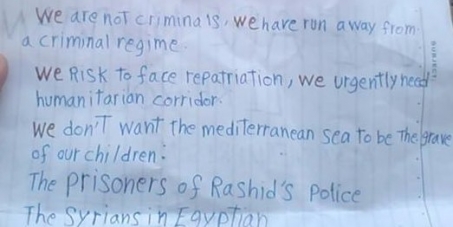 We are not criminals, we have run away from
a criminal regime.
We RISK to face repatriation, we urgently need
humanitarian corridor.
We don't want the mediterranean sea to be the grave
of our children.
The prisoners of Rashid's police
The Syrians in Egyptian